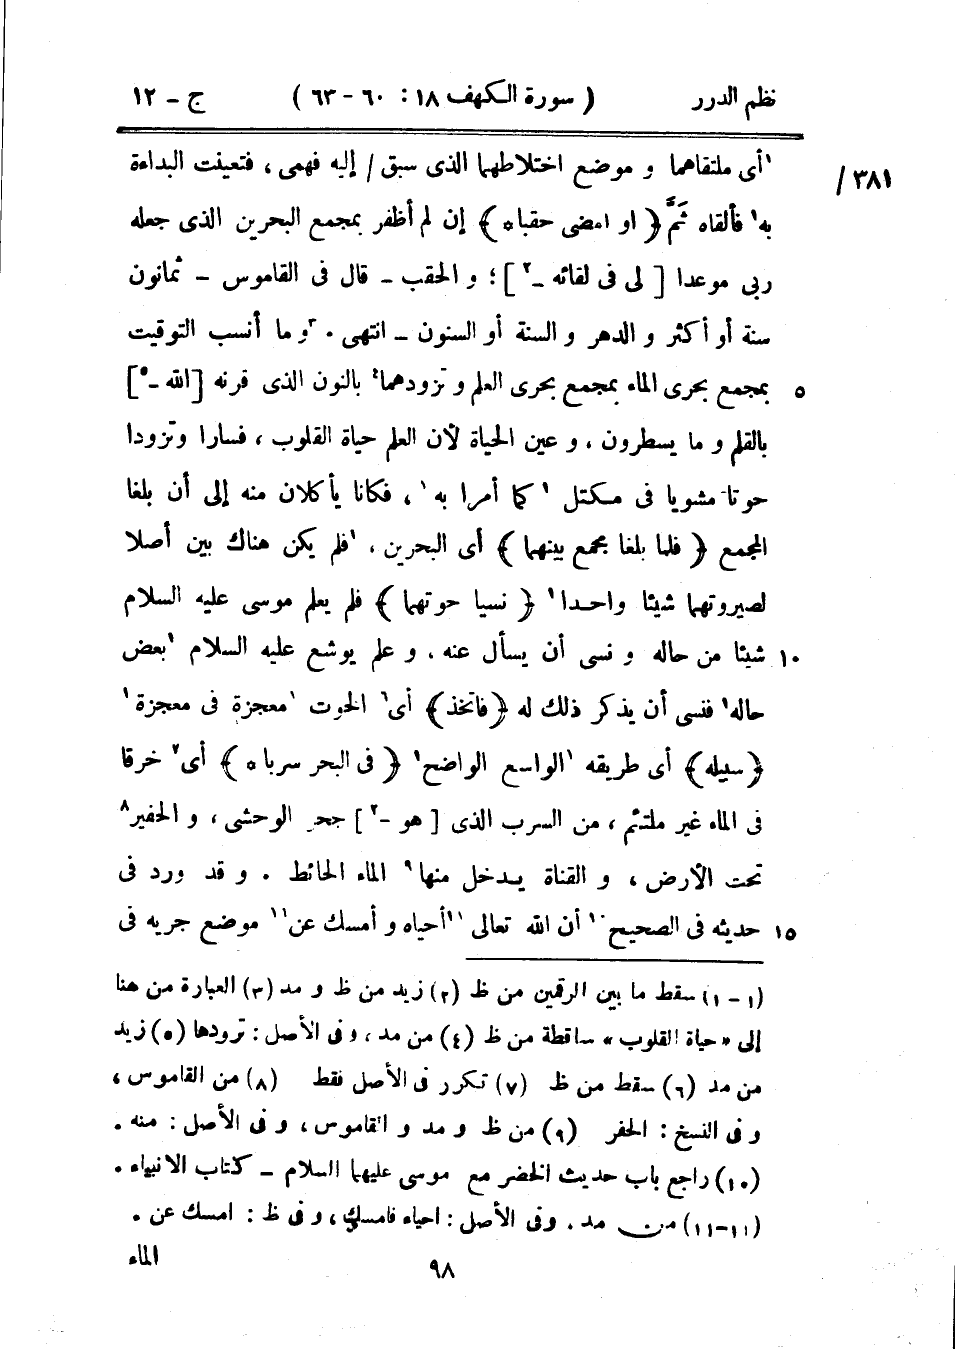 نظم الدرر ( سورة الكهف ١٨ : ٦٠ - ٦٣ ) ج - ١٢
٣٨١/ ١أى ملتقاهما و موضع اختلاطهما الذى سبق / إليه فهمى ، فتعينت البداءة
به١ فألقاه ثَمَّ ﴿ او امضى حقبا ه ﴾ إن لم أظفر بمجمع البحرين الذى جعله
ربى موعدا [ لى فى لقائه -٢ ] ؛ و الحقب - قال فى القاموس - ثمانون
سنة أو أكثر و الدهر و السنة أو السنون - انتهى . ٣و ما أنسب التوقيت
٥ بمجمع بحرى الماء بمجمع بحرى العلم و تزودهما٤ بالنون الذى قرنه [الله -٥]
بالقلم و ما يسطرون ، و عين الحياة لأن العلم حياة القلوب ، فسارا وتزودا
حوتا مشويا فى مكتل ١كما أمرا به١ ، فكانا يأكلان منه إلى أن بلغا
المجمع ﴿ فلما بلغا مجمع بينهما ﴾ أى البحرين ، ١فلم يكن هناك بين أصلا
لصيروتهما شيئا واحدا١ ﴿ نسيا حوتهما ﴾ فلم يعلم موسى عليه السلام
١٠ شيئا من حاله و نسى أن يسأل عنه ، و علم يوشع عليه السلام ١بعض
حاله١ فنسى أن يذكر ذلك له ﴿فاتخذ﴾ أى٦ الحوت ١معجزة فى معجزة١
﴿سبيله﴾ أى طريقه ١الواسع الواضح١ ﴿ فى البحر سربا ه ﴾ أى٧ خرقا
فى الماء غير ملتئم ، من السرب الذى [ هو -٢ ] جحر الوحشى ، و الحفير٨
تحت الأرض ، و القناة يدخل منها٩ الماء الحائط . و قد ورد فى
١٥ حديثه فى الصحيح١٠ أن الله تعالى ١١أحياه و أمسك عن١١ موضع جريه فى
(١-١) سقط ما بين الرقمين من ظ (٢) زيد من ظ و مد (٣) العبارة من هنا
إلى « حياة القلوب » ساقطة من ظ (٤) من مد ، و فى الأصل : ترودها (٥) زيد
من مد (٦) سقط من ظ (٧) تكرر فى الأصل فقط (٨) من القاموس ،
و فى النسخ : الحفر (٩) من ظ و مد و القاموس ، و فى الأصل : منه .
(١٠) راجع باب حديث الخضر مع موسى عليهما السلام - كتاب الانبياء .
(١١-١١) من مد ، وفى الأصل : احياء فامسك ، و فى ظ : امسك عن .
الماء
٩٨